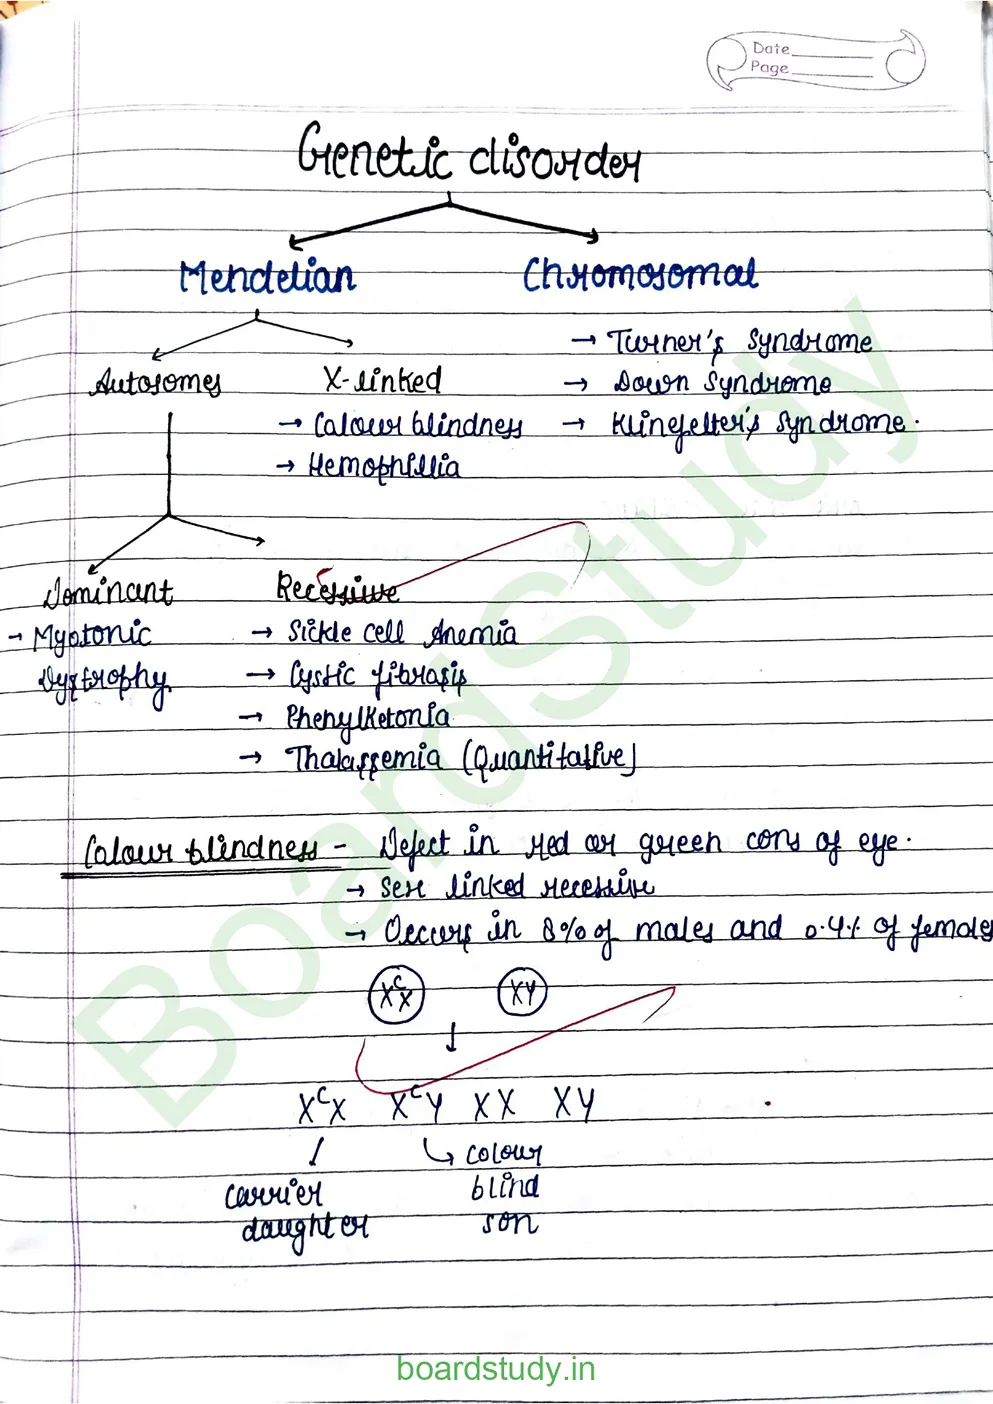 Date
Page
Genetic disorder
Mendelian Chromosomal
Autosomes X-linked
→ Turner's Syndrome
→ Down Syndrome
→ Klinefelter's Syndrome.
→ Colour blindness
→ Hemophillia
Dominant Recessive
→ Myotonic
Dystrophy.
→ Sickle cell Anemia
→ Cystic fibrosis
→ Phenylketonia
→ Thalassemia (Quantitative)
Colour blindness - Defect in red or green cons of eye.
→ Sex linked recessive
→ Occurs in 8% of males and 0.4% of females
XᶜX XY
↓
XᶜX XᶜY XX XY
carrier
daughter
↳ colour
blind
son
BoardStudy
boardstudy.in